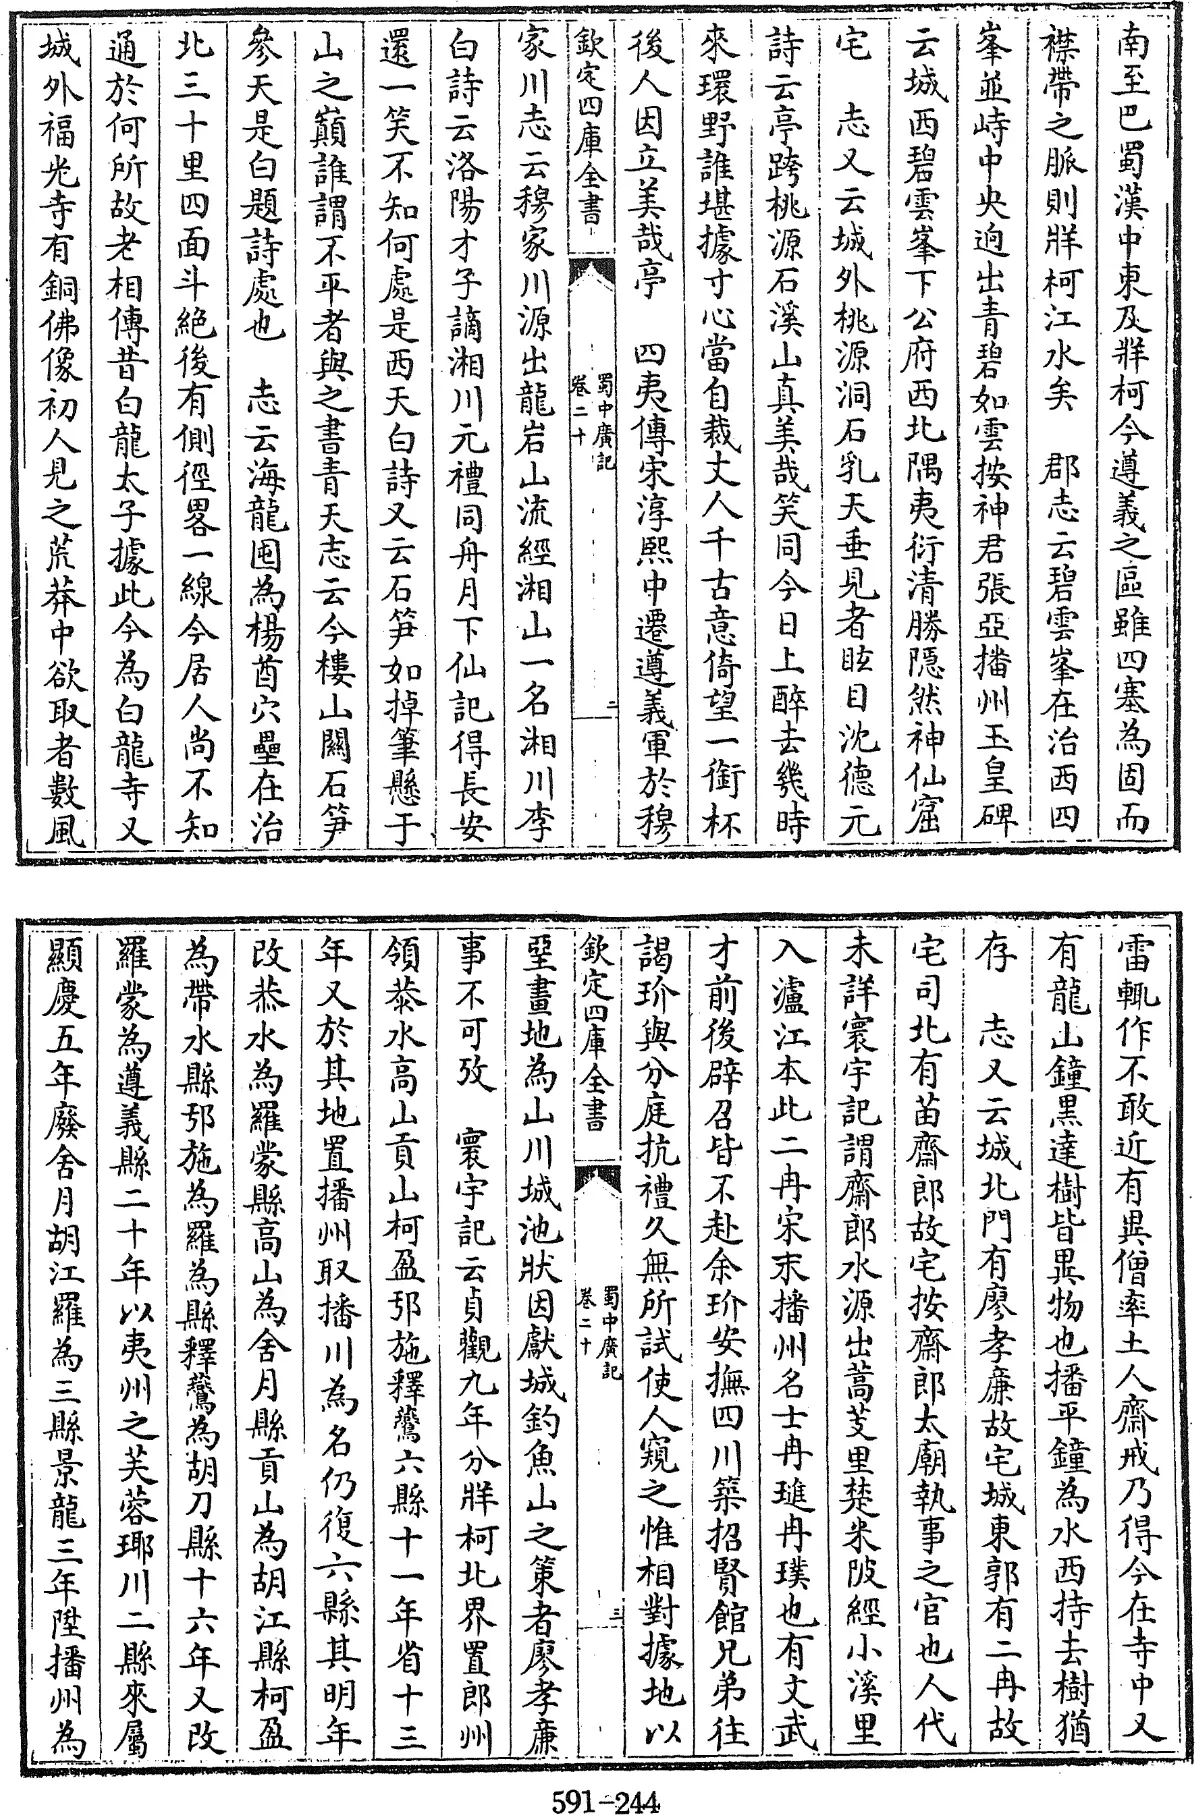 南至巴蜀漢中東及牂柯今遵義之區雖四塞為固而
襟帶之脈則牂柯江水矣　郡志云碧雲峯在治西四
峯並峙中央逈出青碧如雲按神君張亞播州玉皇碑
云城西碧雲峯下公府西北隅夷衍清勝隱然神仙窟
宅　志又云城外桃源洞石乳天垂見者眩目沈德元
詩云亭跨桃源石溪山真美哉笑同今日上醉去幾時
來環野誰堪據寸心當自裁丈人千古意倚望一銜杯
後人因立美哉亭　四夷傳宋淳熙中遷遵義軍於穆
欽定四庫全書
蜀中廣記
卷二十
二
家川志云穆家川源出龍岩山流經湘山一名湘川李
白詩云洛陽才子謫湘川元禮同舟月下仙記得長安
還一笑不知何處是西天白詩又云石笋如掉筆懸于
山之巔誰謂不平者與之書青天志云今樓山關石笋
參天是白題詩處也　志云海龍囤為楊酋穴壘在治
北三十里四面斗絶後有側徑畧一線今居人尚不知
通於何所故老相傳昔白龍太子據此今為白龍寺又
城外福光寺有銅佛像初人見之荒莽中欲取者數風
雷輒作不敢近有異僧率土人齋戒乃得今在寺中又
有龍山鐘黑達樹皆異物也播平鐘為水西持去樹猶
存　志又云城北門有廖孝廉故宅城東郭有二冉故
宅司北有苗齋郎故宅按齋郎太廟執事之官也人代
未詳寰宇記謂齋郎水源出蒿芰里楚米陂經小溪里
入瀘江本此二冉宋末播州名士冉璡冉璞也有文武
才前後辟召皆不赴余玠安撫四川築招賢館兄弟往
謁玠與分庭抗禮久無所試使人窺之惟相對據地以
欽定四庫全書
蜀中廣記
卷二十
三
堊畫地為山川城池狀因獻城釣魚山之策者廖孝廉
事不可攷　寰宇記云貞觀九年分牂柯北界置郎州
領恭水高山貢山柯盈邪施釋鷰六縣十一年省十三
年又於其地置播州取播川為名仍復六縣其明年
改恭水為羅蒙縣高山為舍月縣貢山為胡江縣柯盈
為帶水縣邪施為羅為縣釋鷰為胡刀縣十六年又改
羅蒙為遵義縣二十年以夷州之芙蓉瑘川二縣來屬
顯慶五年廢舍月胡江羅為三縣景龍三年陞播州為
591-244